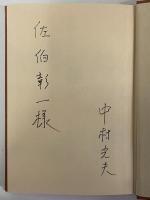 佐伯彰一様
中村光夫